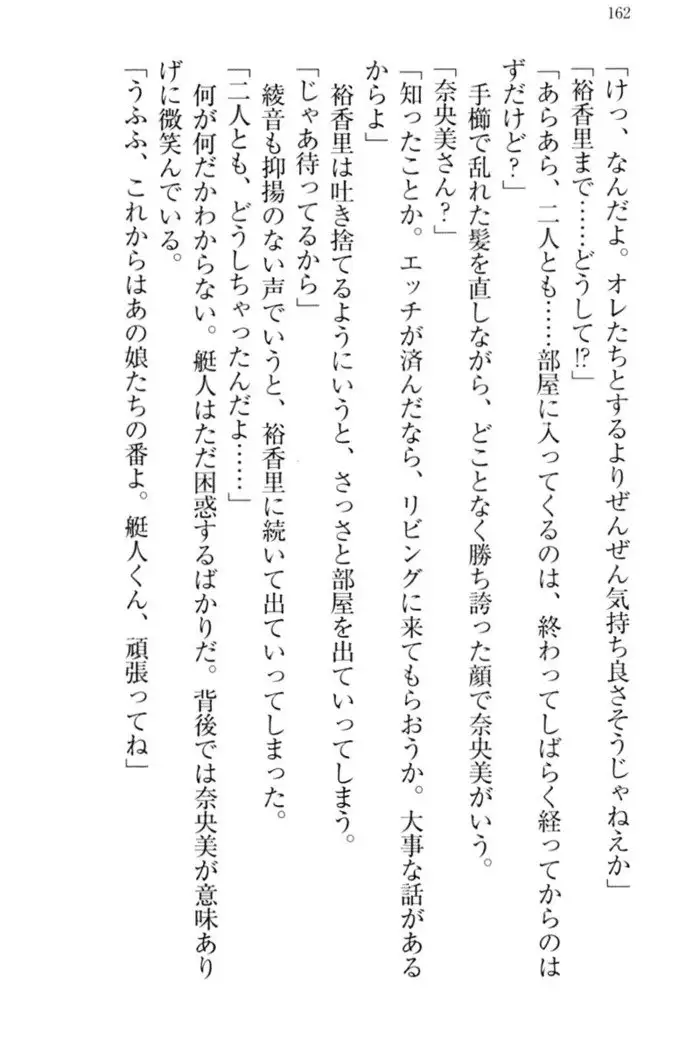 162
「けっ、なんだよ。オレたちとするよりぜんぜん気持ち良さそうじゃねえか」
「裕香里まで……どうして!?」
「あらあら、二人とも……部屋に入ってくるのは、終わってしばらく経ってからのは
ずだけど?」
　手櫛で乱れた髪を直しながら、どことなく勝ち誇った顔で奈央美がいう。
「奈央美さん?」
「知ったことか。エッチが済んだなら、リビングに来てもらおうか。大事な話がある
からよ」
　裕香里は吐き捨てるようにいうと、さっさと部屋を出ていってしまう。
「じゃあ待ってるから」
　綾音も抑揚のない声でいうと、裕香里に続いて出ていってしまった。
「二人とも、どうしちゃったんだよ……」
　何が何だかわからない。艇人はただ困惑するばかりだ。背後では奈央美が意味あり
げに微笑んでいる。
「うふふ、これからはあの娘たちの番よ。艇人くん、頑張ってね」